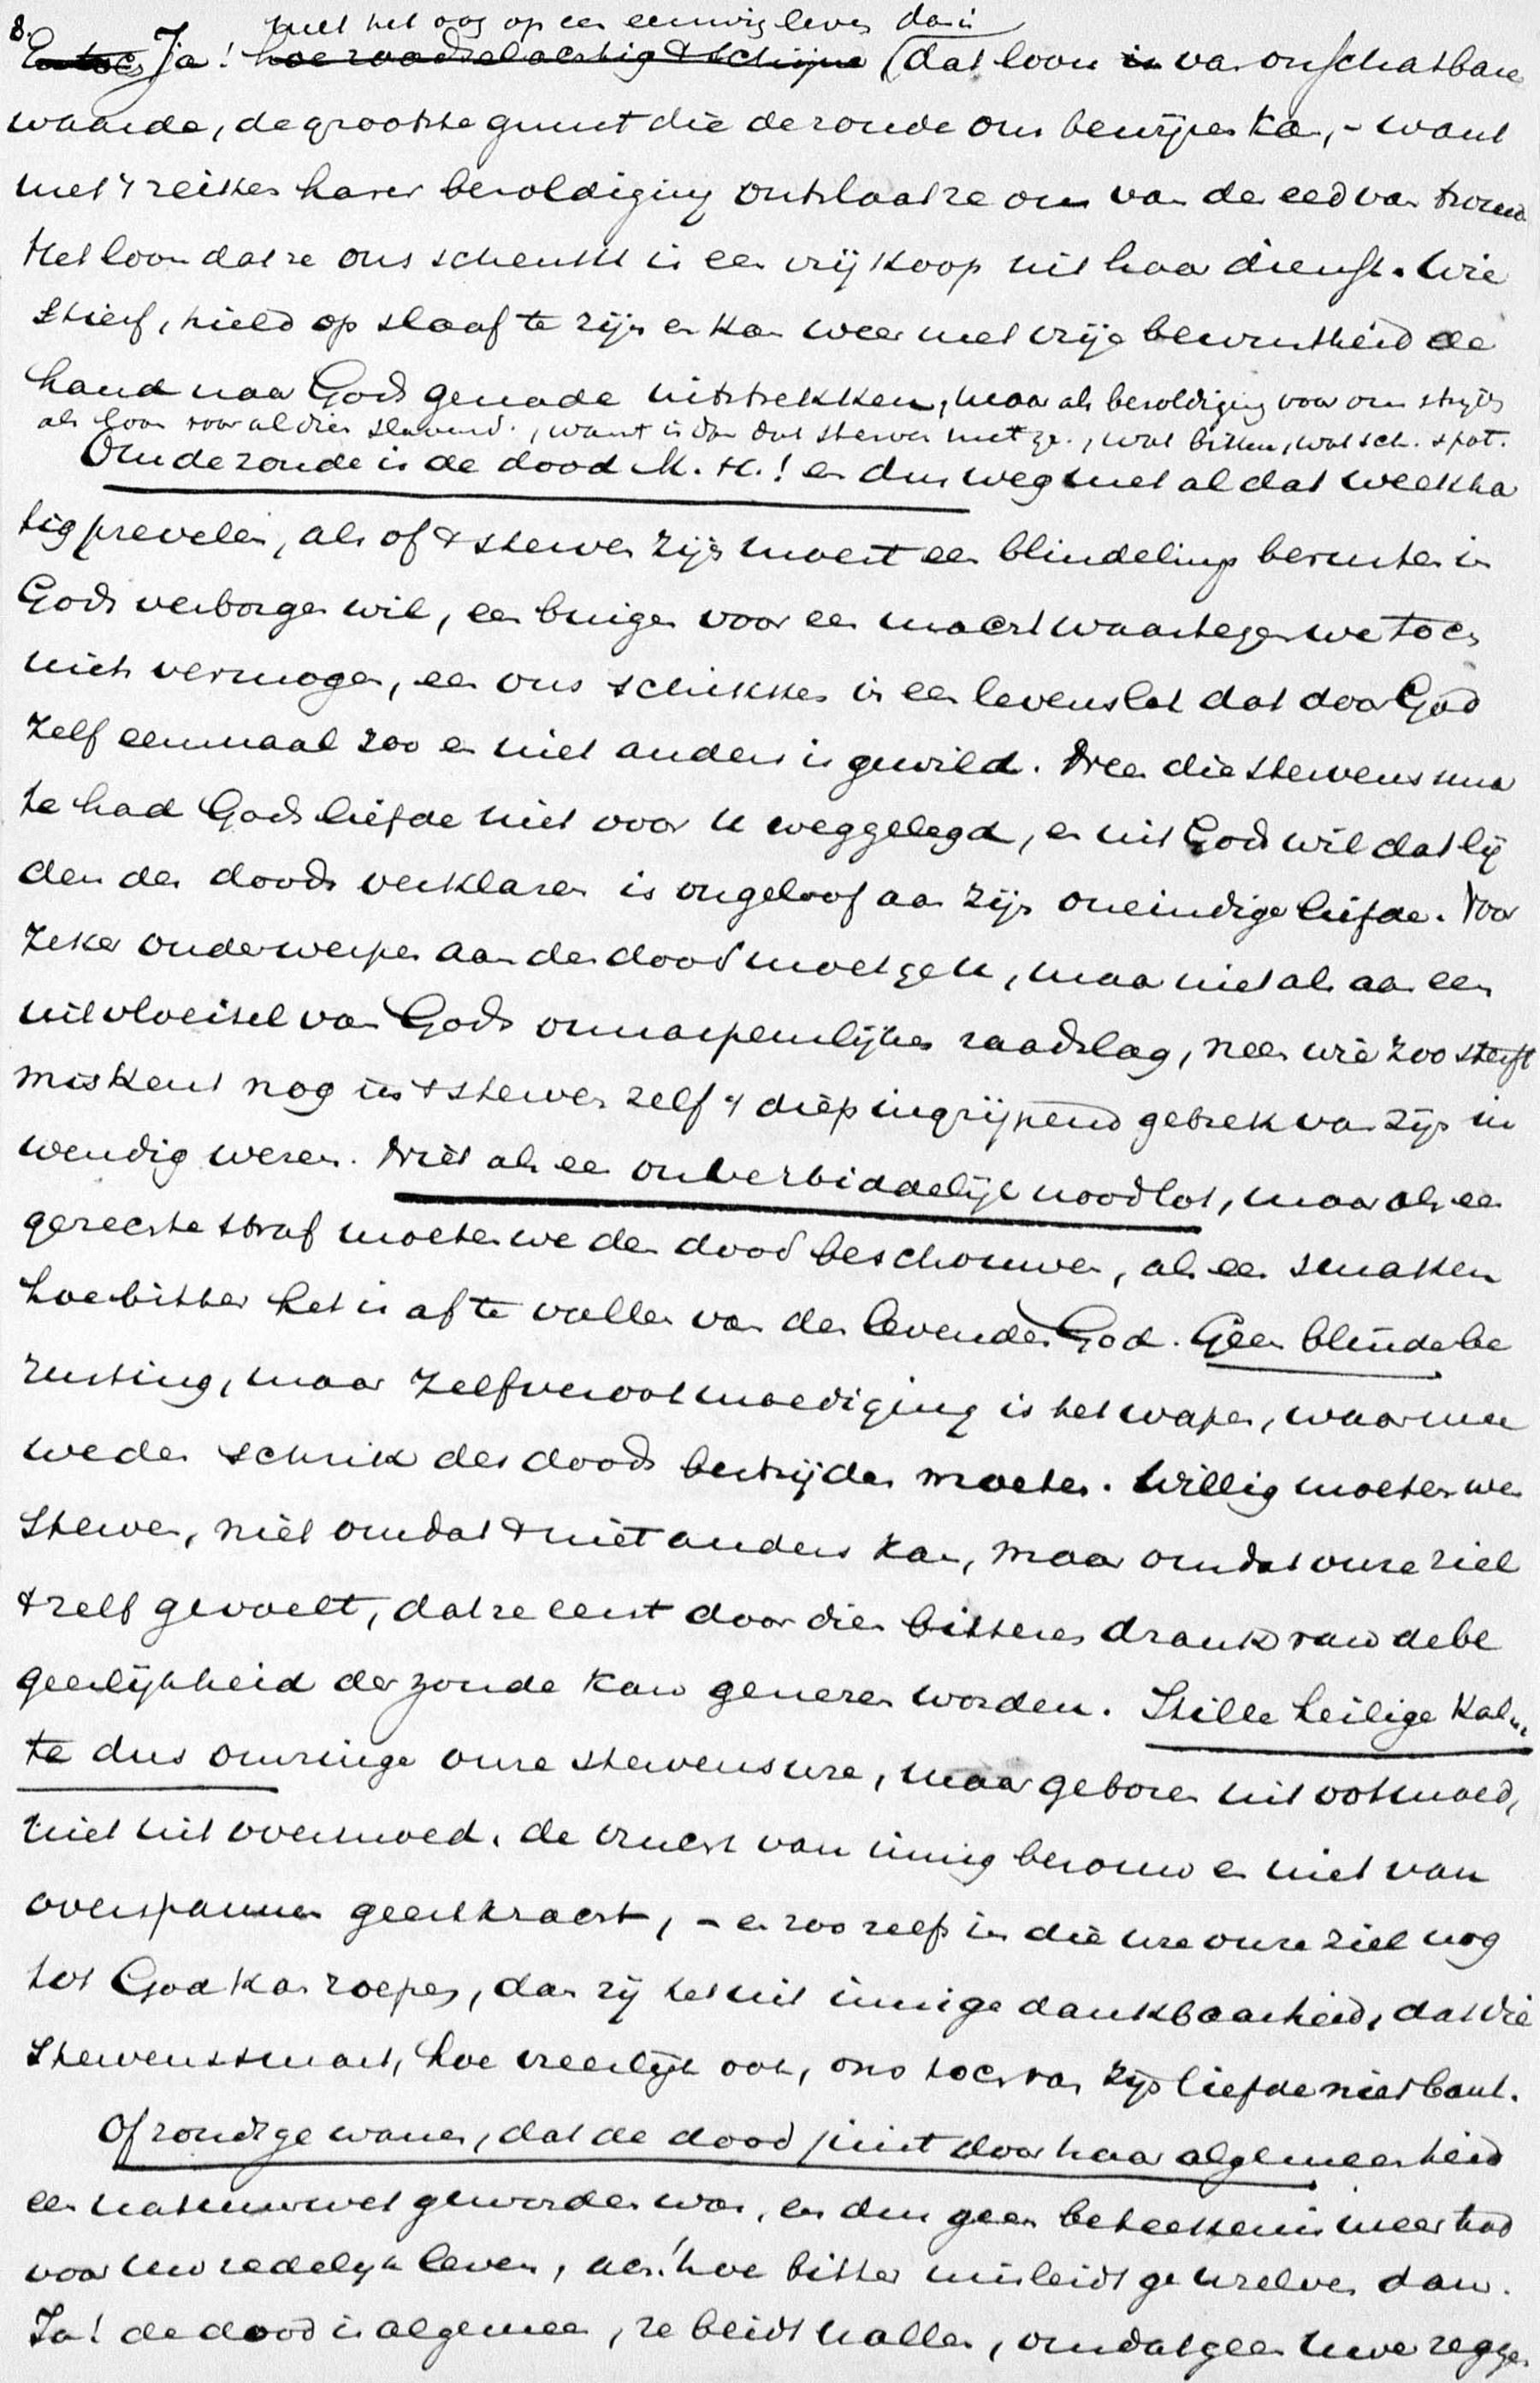 8.
met het oog op een eeuwig leven dan is
En toch Ja! hoe raadselachtig 't schijne (dat loon is van onschatbare
waarde, de grootste gunst die de zonde ons bewijzen kan, - want
met 't reiken harer bezoldiging ontslaat ze ons van den eed van trouw.
Het loon dat ze ons schenkt is een vrijkoop uit haar dienst. Wie
stierf, hield op slaaf te zijn en kan weer met vrije bewustheid de
hand naar Gods genade uitstrekken, maar als bezoldiging voor onz strijd
als loon voor al dien slavend., want is dan dat sterven niet ge., wat bitter, wat sch. spot.
Om de zonde is de dood M. H.! en dus weg met al dat weekhar
tig prevelen, als of 't sterven zijn moest een blindelings berusten in
Gods verborgen wil, een buigen voor een macht waartegen we toch
niets vermogen, een ons schikken in een levenslot dat door God
zelf eenmaal zoo en niet anders is gewild. Neen die stervenssmar
te had Gods liefde niet voor U weggelegd, en uit Gods wil dat lij
den des doods verklaren is ongeloof aan zijn oneindige liefde. Voor
zeker onderwerpen aan den dood moet ge U, maar niet als aan een
uitvloeisel van Gods onnaspeurlijken raadslag, neen wie zoo sterft
miskent nog in 't sterven zelf 't diep ingrijpend gebrek van zijn in
wendig wezen. Niet als een onverbiddelijk noodlot, maar als een
gerechte straf moeten we den dood beschouwen, als een smaken
hoe bitter het is af te vallen van den levenden God. Geen blinde be
rusting, maar zelfverootmoediging is het wapen, waarmee
we den schrik des doods bestrijden moeten. Willig moeten we
sterven, niet omdat 't niet anders kan, maar omdat onze ziel
't zelf gevoelt, dat ze eerst door dien bitteren drank van de be
geerlijkheid der zonde kan genezen worden. Stille heilige kalm
te dus omringe onze stervensure, maar geboren uit ootmoed,
niet uit overmoed, de vrucht van innig berouw en niet van
overspannen geestkracht, - en zoo zelfs in die ure onze ziel nog
tot God kan roepen, dan zij het uit innige dankbaarheid, dat die
stervenssmart, hoe vreeslijk ook, ons toch van zijn liefde niet bant.
Of zoudt ge wanen, dat de dood juist door haar algemeenheid
een natuurwet geworden was, en dus geen beteekenis meer had
voor uw zedelijk leven, ach! hoe bitter misleidt ge U zelven dan.
Ja! de dood is algemeen, ze beidt U allen, omdat geen Uwer zeggen